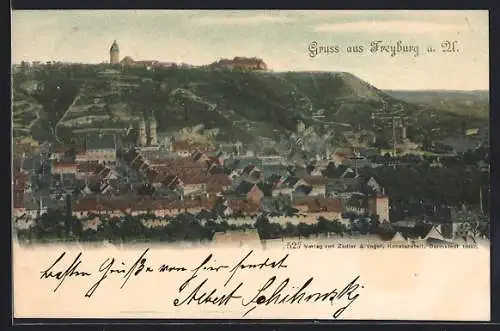 Gruss aus Freyburg a. U.
525 Verlag von Zedler & Vogel, Kunstanstalt, Darmstadt 1900.
Besten Grüße von hier sendet
Albert Schikowski